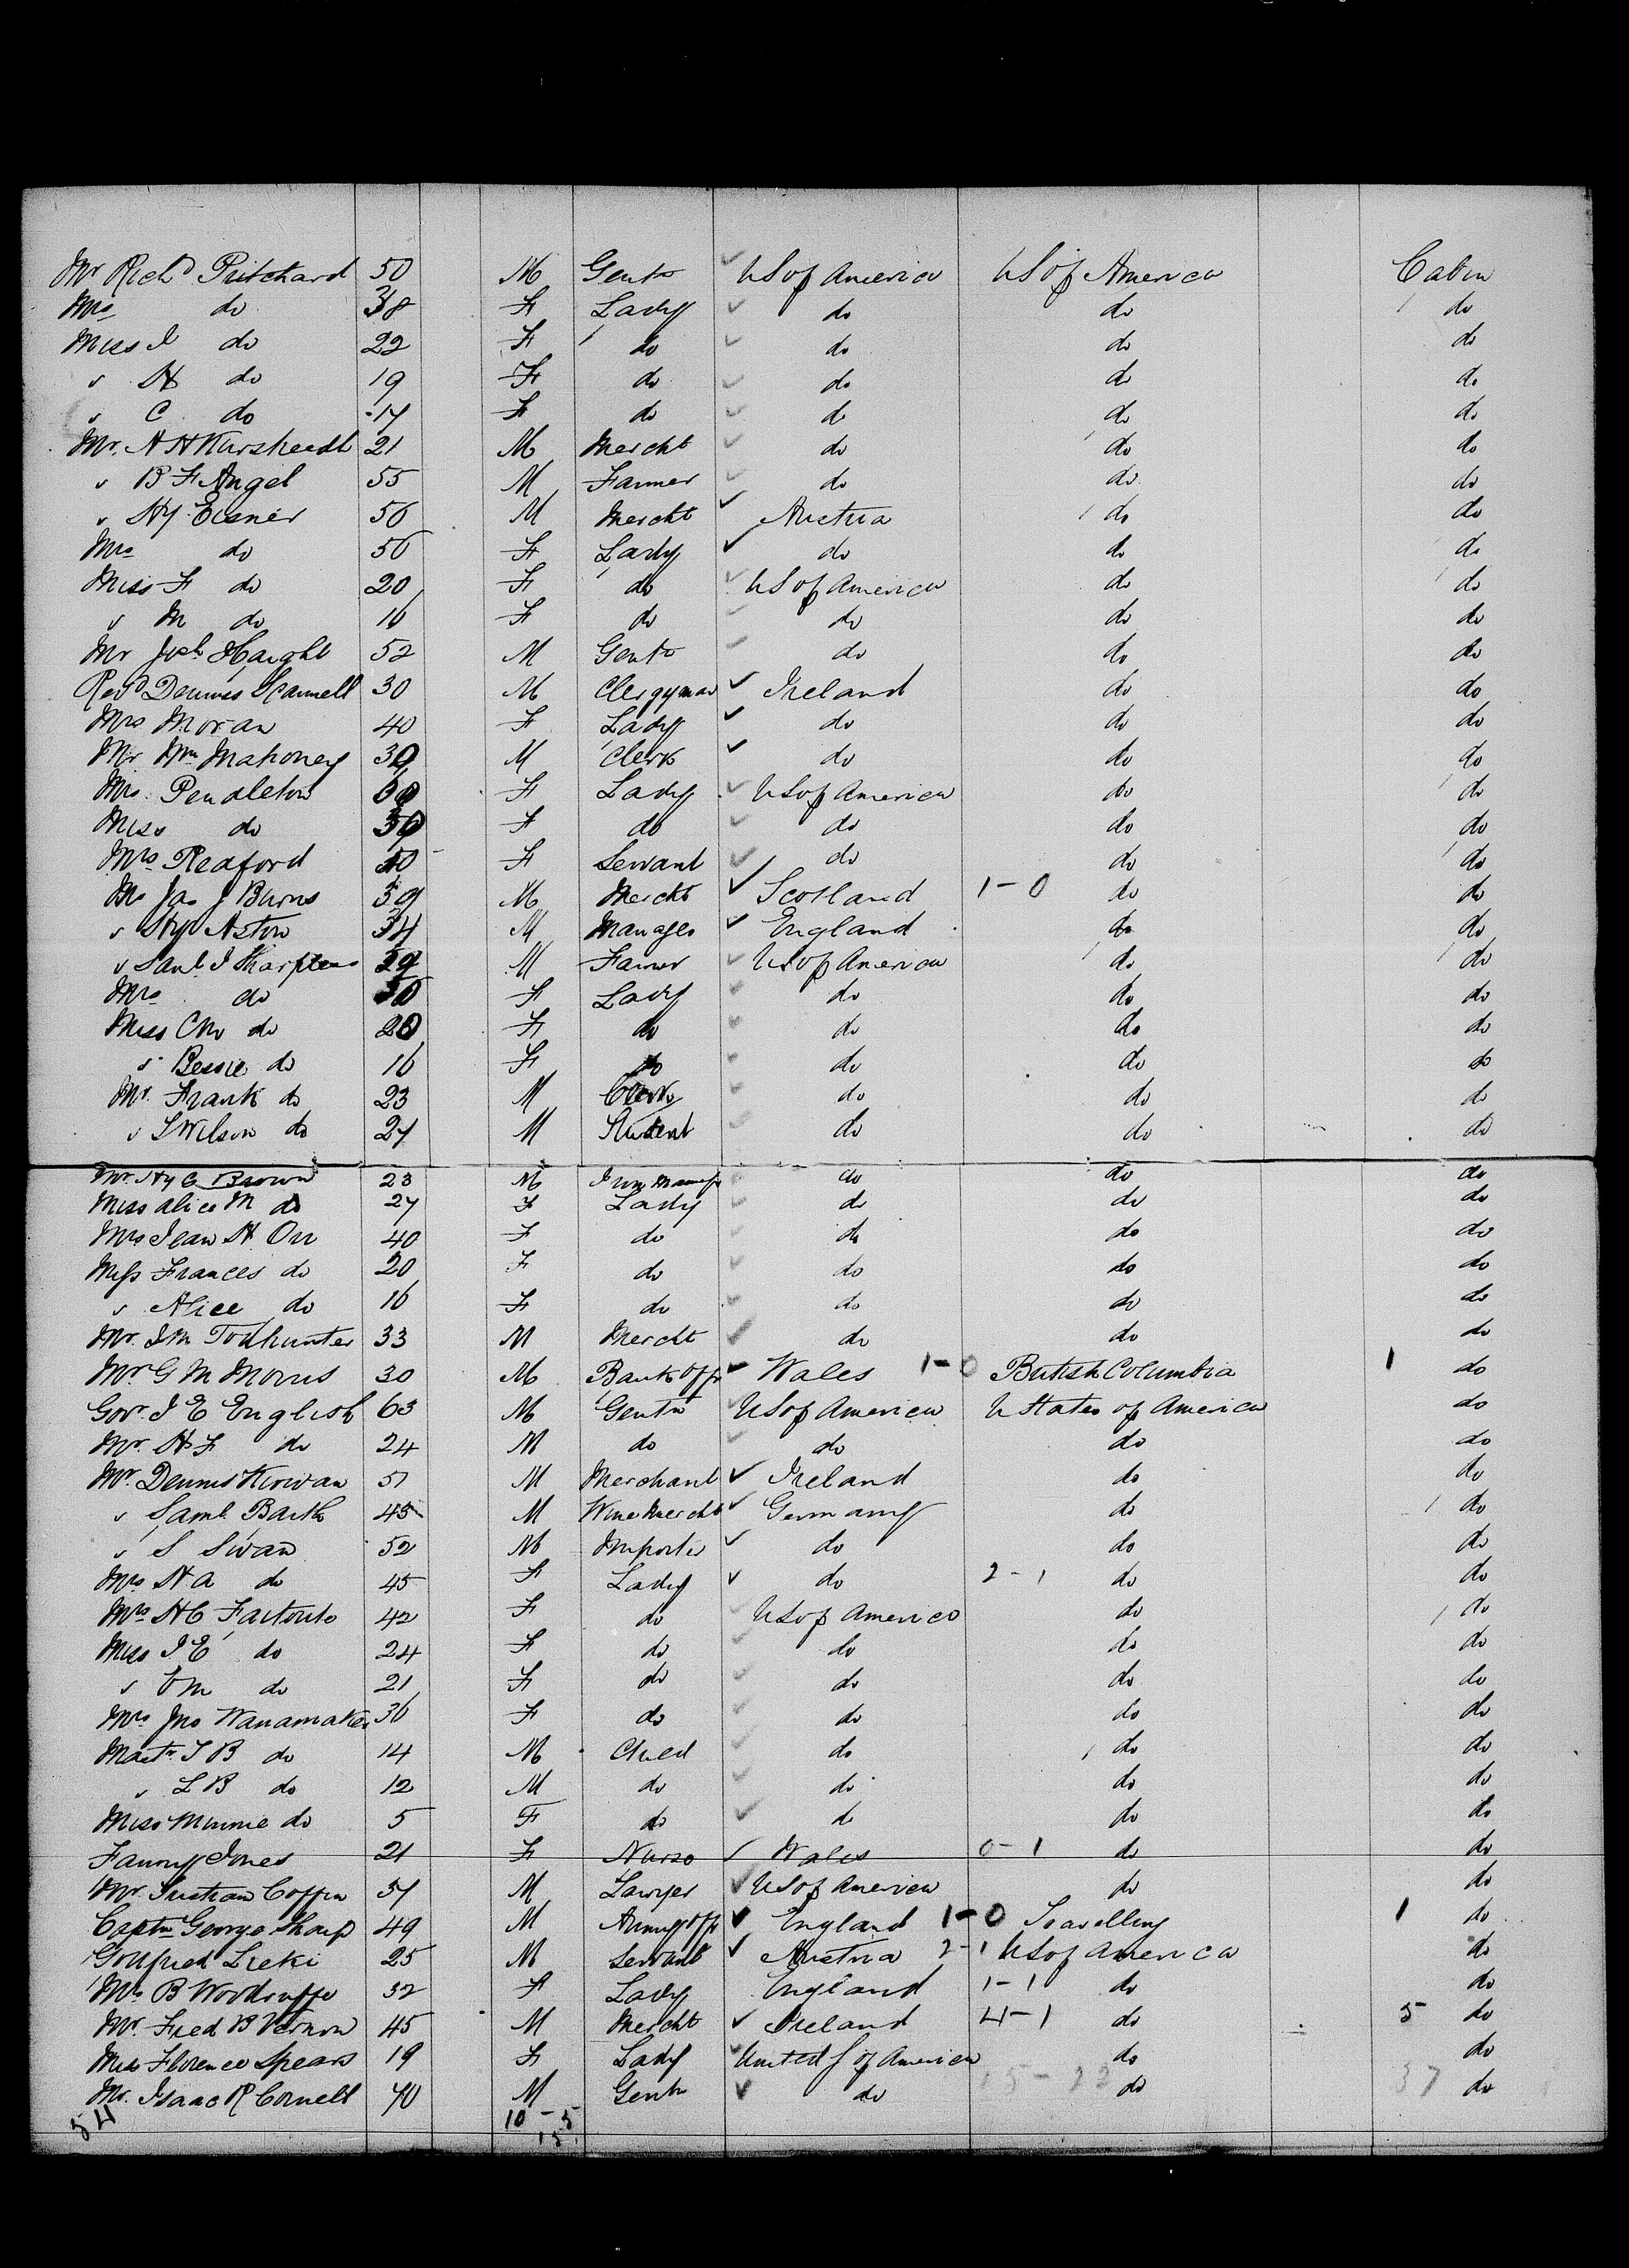 Mr Richd Pritchard 50 M Gentn US of America US of America Cabin
Mrs do 38 F Lady do do do
Miss I do 22 F do do do do
" H do 19 F do do do do
" C do 17 F do do do do
Mr. A H Kursheedt 21 M Mercht do do do
" B F Angel 55 M Farmer do do do
" Hy Eisner 56 M Mercht Austria do do
Mrs do 50 F Lady do do do
Miss F do 20 F do US of America do do
" M do 16 F do do do do
Mr Jos Haight 52 M Gentn do do do
Revd Dennis Scannell 30 M Clergyman Ireland do do
Mrs Moran 40 F Lady do do do
Mr Wm Mahoney 30 M Clerk do do do
Mrs Pendleton 60 F Lady US of America do do
Miss do 30 F do do do do
Mrs Reaford 40 F Servant do do do
Mr Jas J Burns 39 M Mercht Scotland 1-0 do do
" Hy Aston 34 M Manager England do do
" Saml I Sharpless 59 M Farmer US of America do do
Mrs do 50 F Lady do do do
Miss CM do 20 F do do do do
" Bessie do 16 F do do do do
Mr. Frank do 23 M Clerk do do do
" S Wilson do 21 M Student do do do
Mr. Hy C Brown 23 M Iron Manufr do do do
Miss Alice M do 27 F Lady do do do
Mrs Jean H Orr 40 F do do do do
Miss Frances do 20 F do do do do
" Alice do 16 F do do do do
Mr. I M Todhunter 33 M Mercht do do do
Mr G M Morris 30 M Bank Offr Wales 1-0 British Columbia 1 do
Govr. J E English 63 M Gentn US of America U States of America do
Mr. H F do 24 M do do do do
Mr. Dennis Kirwan 51 M Merchant Ireland do do
" Saml. Barth 45 M Wine Mercht Germany do do
" S Swan 52 M Importer do do do
Mrs H A do 45 F Lady do 2-1 do do
Mrs H C Faitoute 42 F do US of America do do
Miss I E do 24 F do do do do
" do 21 F do do do do
Mrs Jno Wanamaker 36 F do do do do
Mastr T B do 14 M Child do do do
" L B do 12 M do do do do
Miss Minnie do 5 F do do do do
Fanny Jones 21 F Nurse Wales 0-1 do do
Mr. Tristram Coffin 51 M Lawyer US of America do do
Captn George Sharp 49 M Army Offr England 1-0 Travelling 1 do
Gottfried 25 M Servant Austria 2-1 US of America do
Mrs B Woodruffe 32 F Lady England 1-1 do do
Mr. Fred B Vernon 45 M Mercht Ireland 4-1 do 5 do
Miss Florence Spears 19 F Lady United S of America do do
Mr. Isaac R Cornell 70 M Gentn do do 37 do
54 10-5
15